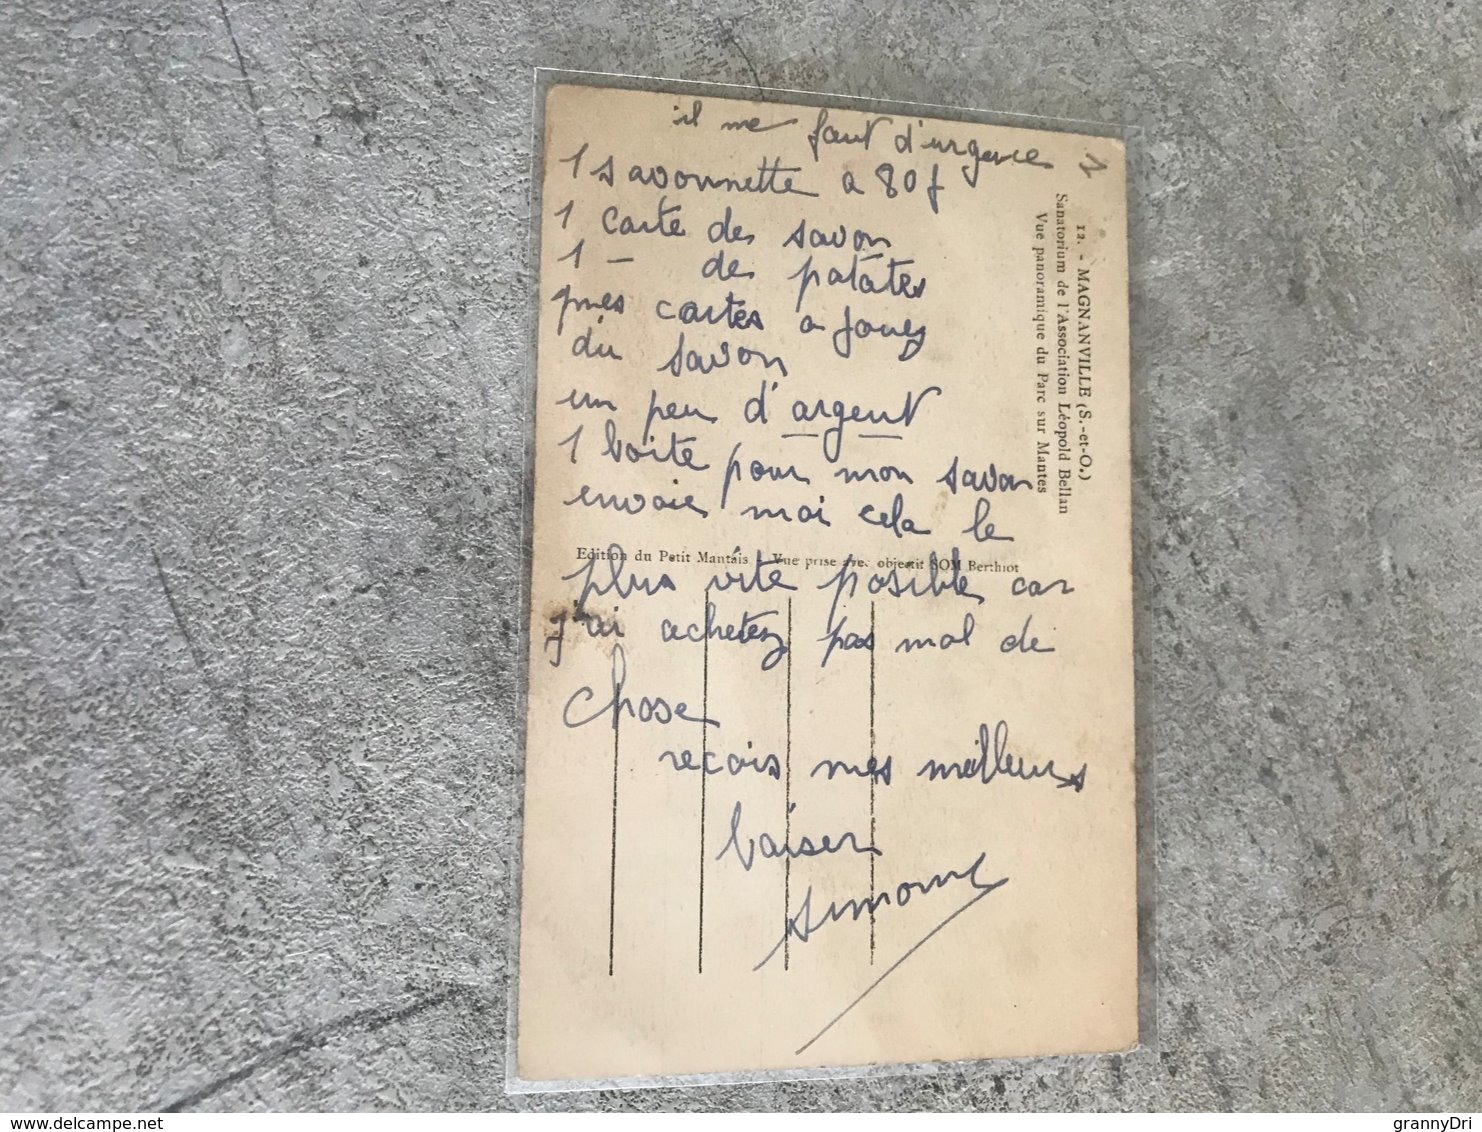 il me faut d'urgence 1
1 savonnette a 80f
1 carte des savon
1 - des patates
mes cartes a jouey
du savon
un peu d'argent
1 boite pour mon savon
envoie moi cela le
plus vite posible car
j'ai achetez pas mal de
chose
recois mes meilleurs
baiser
simone
12. - MAGNANVILLE (S.-et-O.)
Sanatorium de l'Association Léopold Bellan
Vue panoramique du Parc sur Mantes
Edition du Petit Mantais - Vue prise avec objectif SOM Berthiot
www.delcampe.net
grannyDri